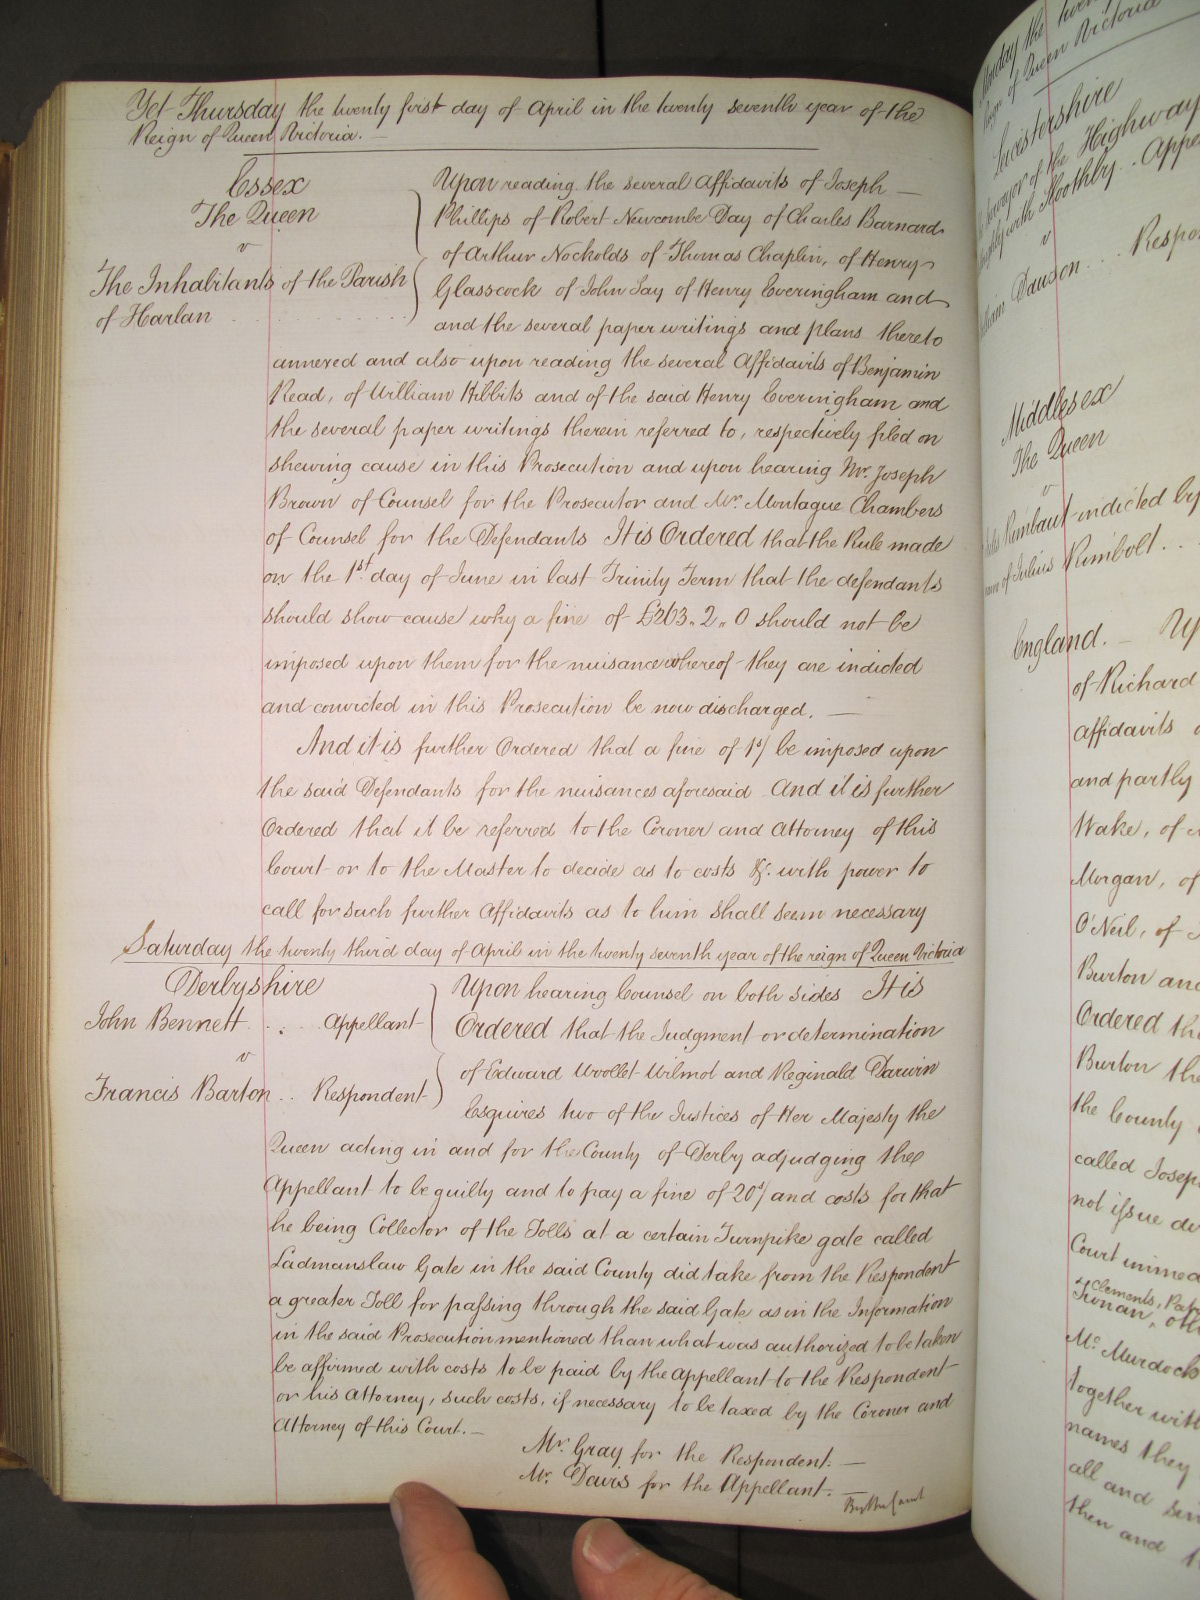 Yet Thursday the twenty first day of April in the twenty seventh year of the
Reign of Queen Victoria. —
Essex
The Queen
v
The Inhabitants of the Parish
of Harlan
Upon reading the several Affidavits of Joseph —
Phillips of Robert Newcombe Day of Charles Barnard
of Arthur Nockolds of Thomas Chaplin, of Henry
Glasscock of John Jay of Henry Everingham and
and the several paper writings and plans thereto
annexed and also upon reading the several Affidavits of Benjamin
Read, of William Hibbits and of the said Henry Everingham and
the several paper writings therein referred to, respectively filed on
shewing cause in this Prosecution and upon hearing Mr. Joseph
Brown of Counsel for the Prosecutor and Mr. Montague Chambers
of Counsel for the Defendants It is Ordered that the Rule made
on the 1st day of June in last Trinity Term that the defendants
should show cause why a fine of £263.. 2.. 0 should not be
imposed upon them for the nuisance whereof they are indicted
and convicted in this Prosecution be now discharged. —
And it is further Ordered that a fine of 1s/ be imposed upon
the said Defendants for the nuisances aforesaid And it is further
Ordered that it be referred to the Coroner and Attorney of this
Court or to the Master to decide as to costs &c. with power to
call for such further Affidavits as to him shall seem necessary
Saturday the twenty third day of April in the twenty seventh year of the reign of Queen Victoria
Derbyshire
John Bennett . . . . Appellant
v
Francis Barton . . Respondent
Upon hearing Counsel on both sides It is
Ordered that the Judgment or determination
of Edward Woollet Wilmot and Reginald Darwin
Esquires two of the Justices of Her Majesty the
Queen acting in and for the County of Derby adjudging the
Appellant to be guilty and to pay a fine of 20s/ and costs for that
he being Collector of the Tolls at a certain Turnpike gate called
Ladmanslaw Gate in the said County did take from the Respondent
a greater Toll for passing through the said Gate as in the Information
in the said Prosecution mentioned than what was authorized to be taken
be affirmed with costs to be paid by the Appellant to the Respondent
or his Attorney, such costs, if necessary to be taxed by the Coroner and
Attorney of this Court. —
Mr. Gray for the Respondent. —
Mr. Davis for the Appellant. —
By the Court
Monday the
Reign of Queen Victoria
Leicestershire
of the Highway
with Hoothby . . Appe
v
Dawson . . . Respo
Middlesex
The Queen
v
Rimbaut indicted by
of Julius Rimbolt . . .
England. — Up
of Richard
affidavits
and partly
Wake, of
Morgan, of
O'Neil, of
Burton and
Ordered th
Burton the
the County
called Josep
not issue du
Court immed
Clements, Pat
Tronan, oth
Mc Murdock
together with
names they
all and
then and